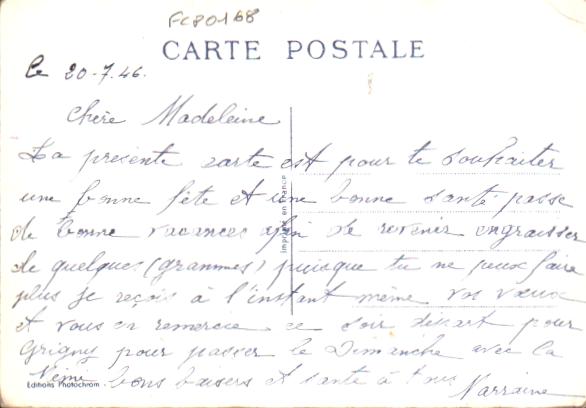 FC80168
CARTE POSTALE
le 20-7-46.
Chère Madeleine
La présente carte est pour te souhaiter
une bonne fête et une bonne santé passe
de bonne vacances afin de revenir engraisser
de quelques (grammes) puisque tu ne peux faire
plus je reçois à l'instant même vos vœux
et vous en remercie ce soir départ pour
Grigny pour passer le Dimanche avec la
Mémé bons baisers et santé à tous
Marraine
Imprimé en France
Editions Photochrom